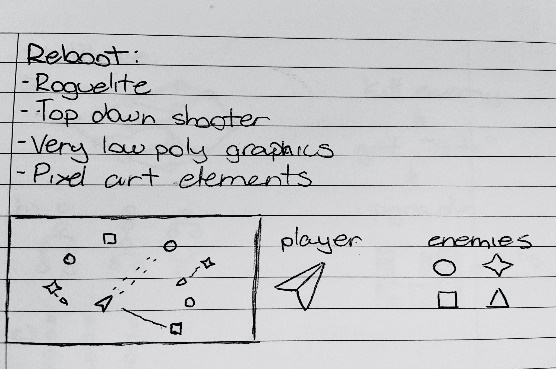 Reboot:
-Roguelite
-Top down shooter
-Very low poly graphics
-Pixel art elements
player
enemies